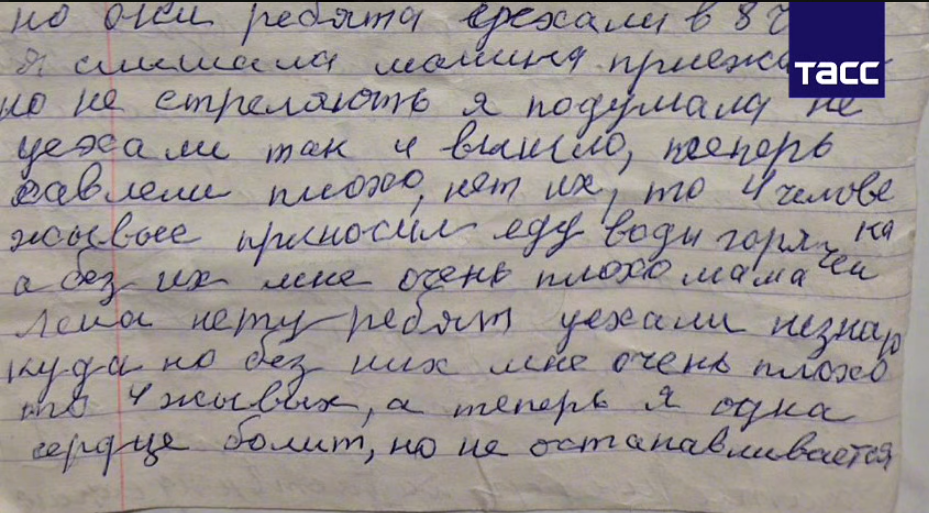 но они ребята уехали в 8 ч
я слышала машина приежа
но не стреляють я подумала не
уехали так и вышло, теперь
плохо, нет их, то 4 челове
ка
жывые приносил еду воды горя
чей
а без их мне очень плохо мама
Лена нету ребят уехали незнаю
куда но без них мне очень плохо
то 4 жывых, а теперь я одна
сердце болит, но не останавливается
ТАСС